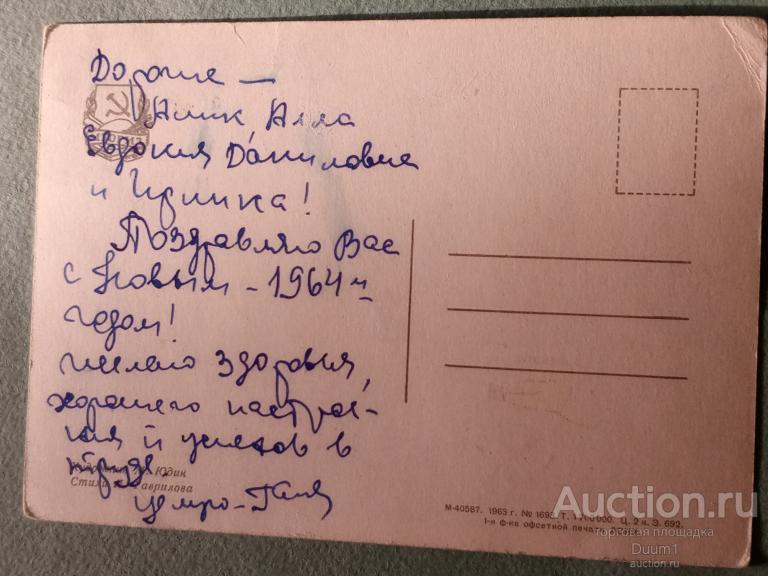 Дорогие —
Алик Алла
Евдокия Даниловна
и Иринка!
Поздравляю Вас
с Новым - 1964 м
годом!
желаю здоровья,
хорошего настрое-
ния и успехов в
труде.
Юдин
Стихи Гаврилова
Галя
М-40587. 1963 г. № 1693. Т. 000. Ц. 2 к. З. 692.
1-я ф-ка офсетной печати
Auction.ru
торговая площадка
Duum1
auction.ru